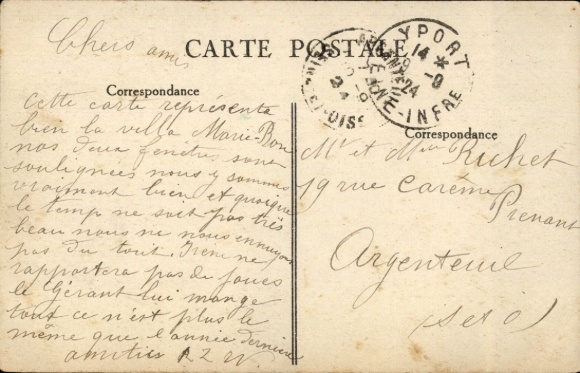 Chers amis
CARTE POSTALE
YPORT
14 *
9-9
24
SEINE-INFRE
ARGENTEUIL
24
SEINE-ET-OISE
Correspondance
Correspondance
Cette carte représente
bien la villa Marie-Bon
nos deux fenêtres sont
soulignées nous y sommes
vraiment bien et quoique
le temp ne soit pas très
beau nous ne nous ennuyons
pas du tout. Irène ne
rapportera pas de joues
le Gérant lui mange
tout ce n'est plus le
même que l'année dernière
amitiés
Mr et Mme Richet
19 rue Carême
Prenant
Argenteuil
S et O